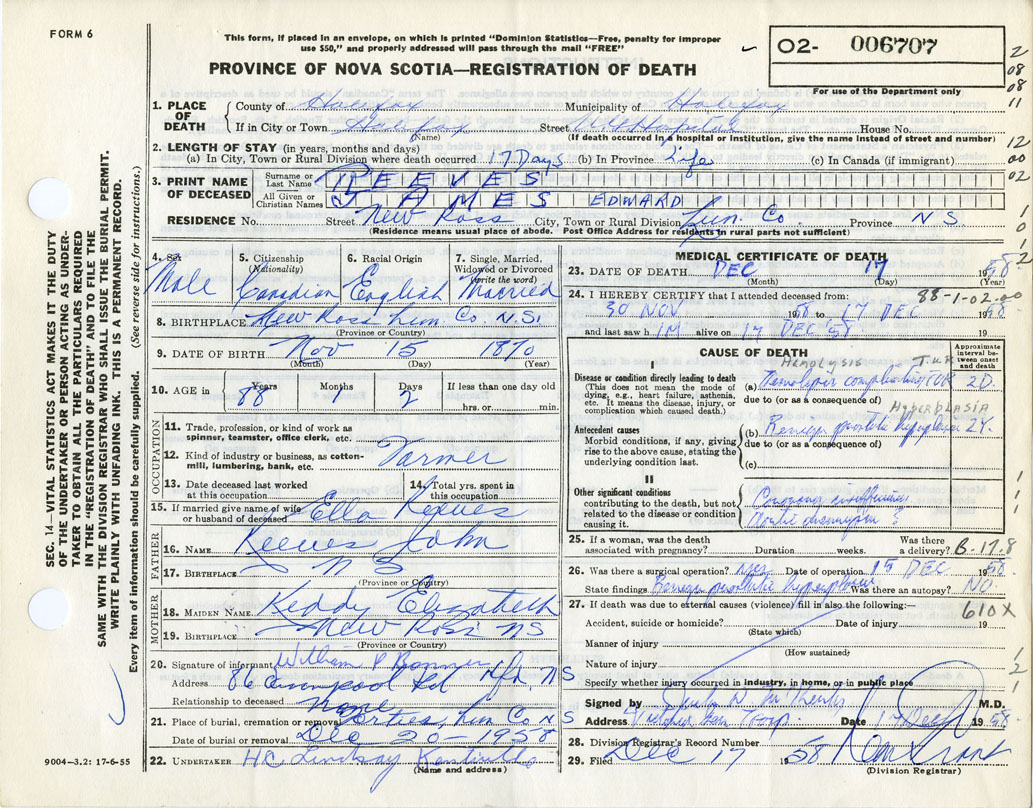 FORM 6
This form, if placed in an envelope, on which is printed "Dominion Statistics—Free, penalty for improper
use $50," and properly addressed will pass through the mail "FREE"
02- 006707
For use of the Department only
PROVINCE OF NOVA SCOTIA—REGISTRATION OF DEATH
2
08
08
11
12
02
1
0
1
2
1. PLACE OF DEATH County of Halifax Municipality of Halifax
If in City or Town Halifax Street House No.
(Name) (If death occurred in a hospital or institution, give the name instead of street and number)
2. LENGTH OF STAY (in years, months and days)
(a) In City, Town or Rural Division where death occurred 17 Days (b) In Province Life (c) In Canada (if immigrant)
3. PRINT NAME OF DECEASED Surname or Last Name REEVES
All Given or Christian Names JAMES EDWARD
RESIDENCE No. Street New Ross City, Town or Rural Division Lun. Co. Province N S.
(Residence means usual place of abode. Post Office Address for residents in rural parts not sufficient)
SEC. 14—VITAL STATISTICS ACT MAKES IT THE DUTY
OF THE UNDERTAKER OR PERSON ACTING AS UNDER-
TAKER TO OBTAIN ALL THE PARTICULARS REQUIRED
IN THE "REGISTRATION OF DEATH" AND TO FILE THE
SAME WITH THE DIVISION REGISTRAR WHO SHALL ISSUE THE BURIAL PERMIT.
WRITE PLAINLY WITH UNFADING INK. THIS IS A PERMANENT RECORD.
Every item of information should be carefully supplied. (See reverse side for instructions.)
4. Sex Male
5. Citizenship (Nationality) Canadian
6. Racial Origin English
7. Single, Married, Widowed or Divorced (write the word) Married
8. BIRTHPLACE New Ross Lun. Co. N.S.
(Province or Country)
9. DATE OF BIRTH Nov 15 1870
(Month) (Day) (Year)
10. AGE in Years 88 Months Days 2 If less than one day old
hrs. or min.
OCCUPATION
11. Trade, profession, or kind of work as
spinner, teamster, office clerk, etc.
12. Kind of industry or business, as cotton-
mill, lumbering, bank, etc. Farmer
13. Date deceased last worked
at this occupation
14. Total yrs. spent in
this occupation
15. If married give name of wife
or husband of deceased Ella Reeves
FATHER
16. NAME Reeves John
17. BIRTHPLACE N S
(Province or Country)
MOTHER
18. MAIDEN NAME Keddy Elizabeth
19. BIRTHPLACE New Ross NS
(Province or Country)
20. Signature of informant William P
Address 86 Rd Hfx, NS
Relationship to deceased none
21. Place of burial, cremation or removal Lun Co N S
Date of burial or removal Dec 20 - 1958
22. UNDERTAKER HC Lindsay Kentville
(Name and address)
9004—3.2: 17-6-55
MEDICAL CERTIFICATE OF DEATH
23. DATE OF DEATH DEC 17 1958
(Month) (Day) (Year)
88-1-02.00
24. I HEREBY CERTIFY that I attended deceased from:
30 NOV 1958 to 17 DEC 1958
and last saw h IM alive on 17 DEC '58 19
CAUSE OF DEATH
Approximate interval between onset and death
I
Hemolysis T.U.R
Disease or condition directly leading to death
(This does not mean the mode of
dying, e.g., heart failure, asthenia,
etc. It means the disease, injury, or
complication which caused death.)
(a) Hemolysis complicating TUR 2D.
due to (or as a consequence of)
HYPERPLASIA
Antecedent causes
Morbid conditions, if any, giving
rise to the above cause, stating the
underlying condition last.
(b) Benign prostatic hyperplasia 2Y.
due to (or as a consequence of)
(c)
II
Other significant conditions
contributing to the death, but not
related to the disease or condition
causing it.
Coronary insufficiency
1
1
1
25. If a woman, was the death
associated with pregnancy? Duration weeks. Was there
a delivery? B-17.8
26. Was there a surgical operation? yes Date of operation 15 DEC 1958
State findings Benign prostatic hyperplasia Was there an autopsy? No
27. If death was due to external causes (violence) fill in also the following:— 610X
Accident, suicide or homicide? Date of injury 19
(State which)
Manner of injury
(How sustained)
Nature of injury
Specify whether injury occurred in industry, in home, or in public place
1
2
1
Signed by M.D.
Address Date 17 Dec 1958
28. Division Registrar's Record Number
29. Filed Dec 17 1958
(Division Registrar)